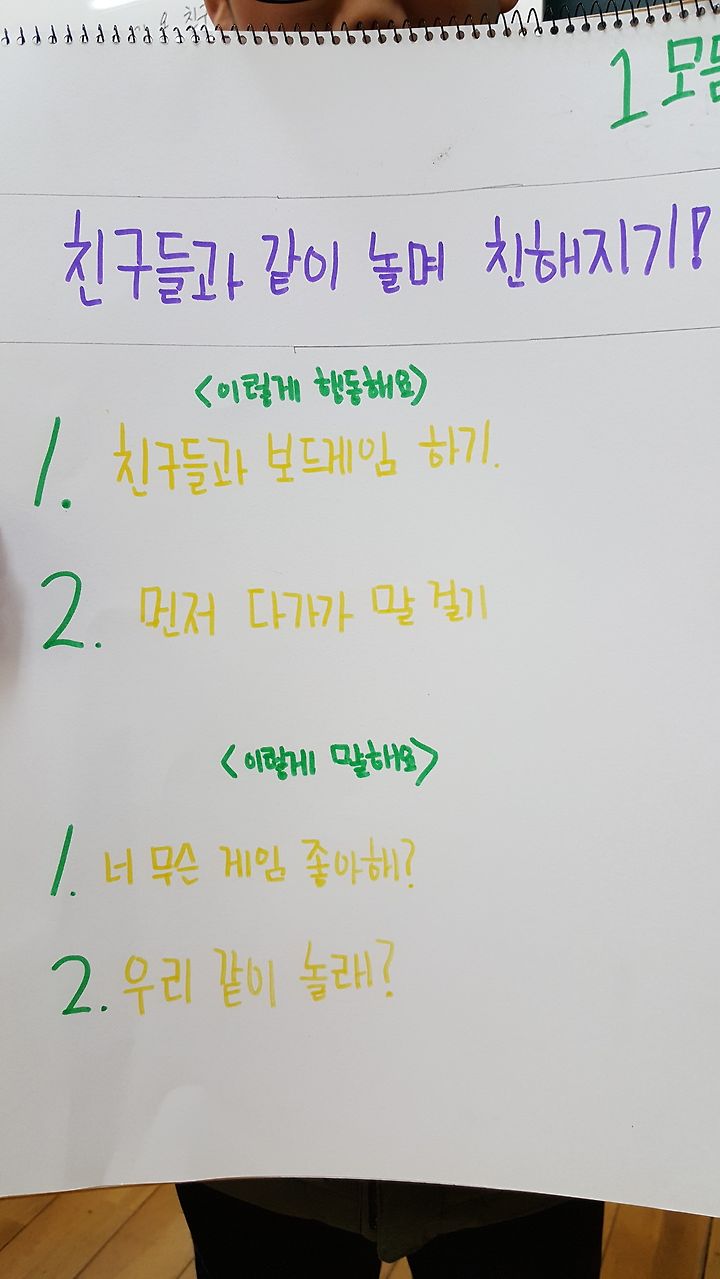 1 모둠
친구들과 같이 놀며 친해지기!
<이렇게 행동해요>
1. 친구들과 보드게임 하기.
2. 먼저 다가가 말 걸기
<이렇게 말해요>
1. 너 무슨 게임 좋아해?
2. 우리 같이 놀래?